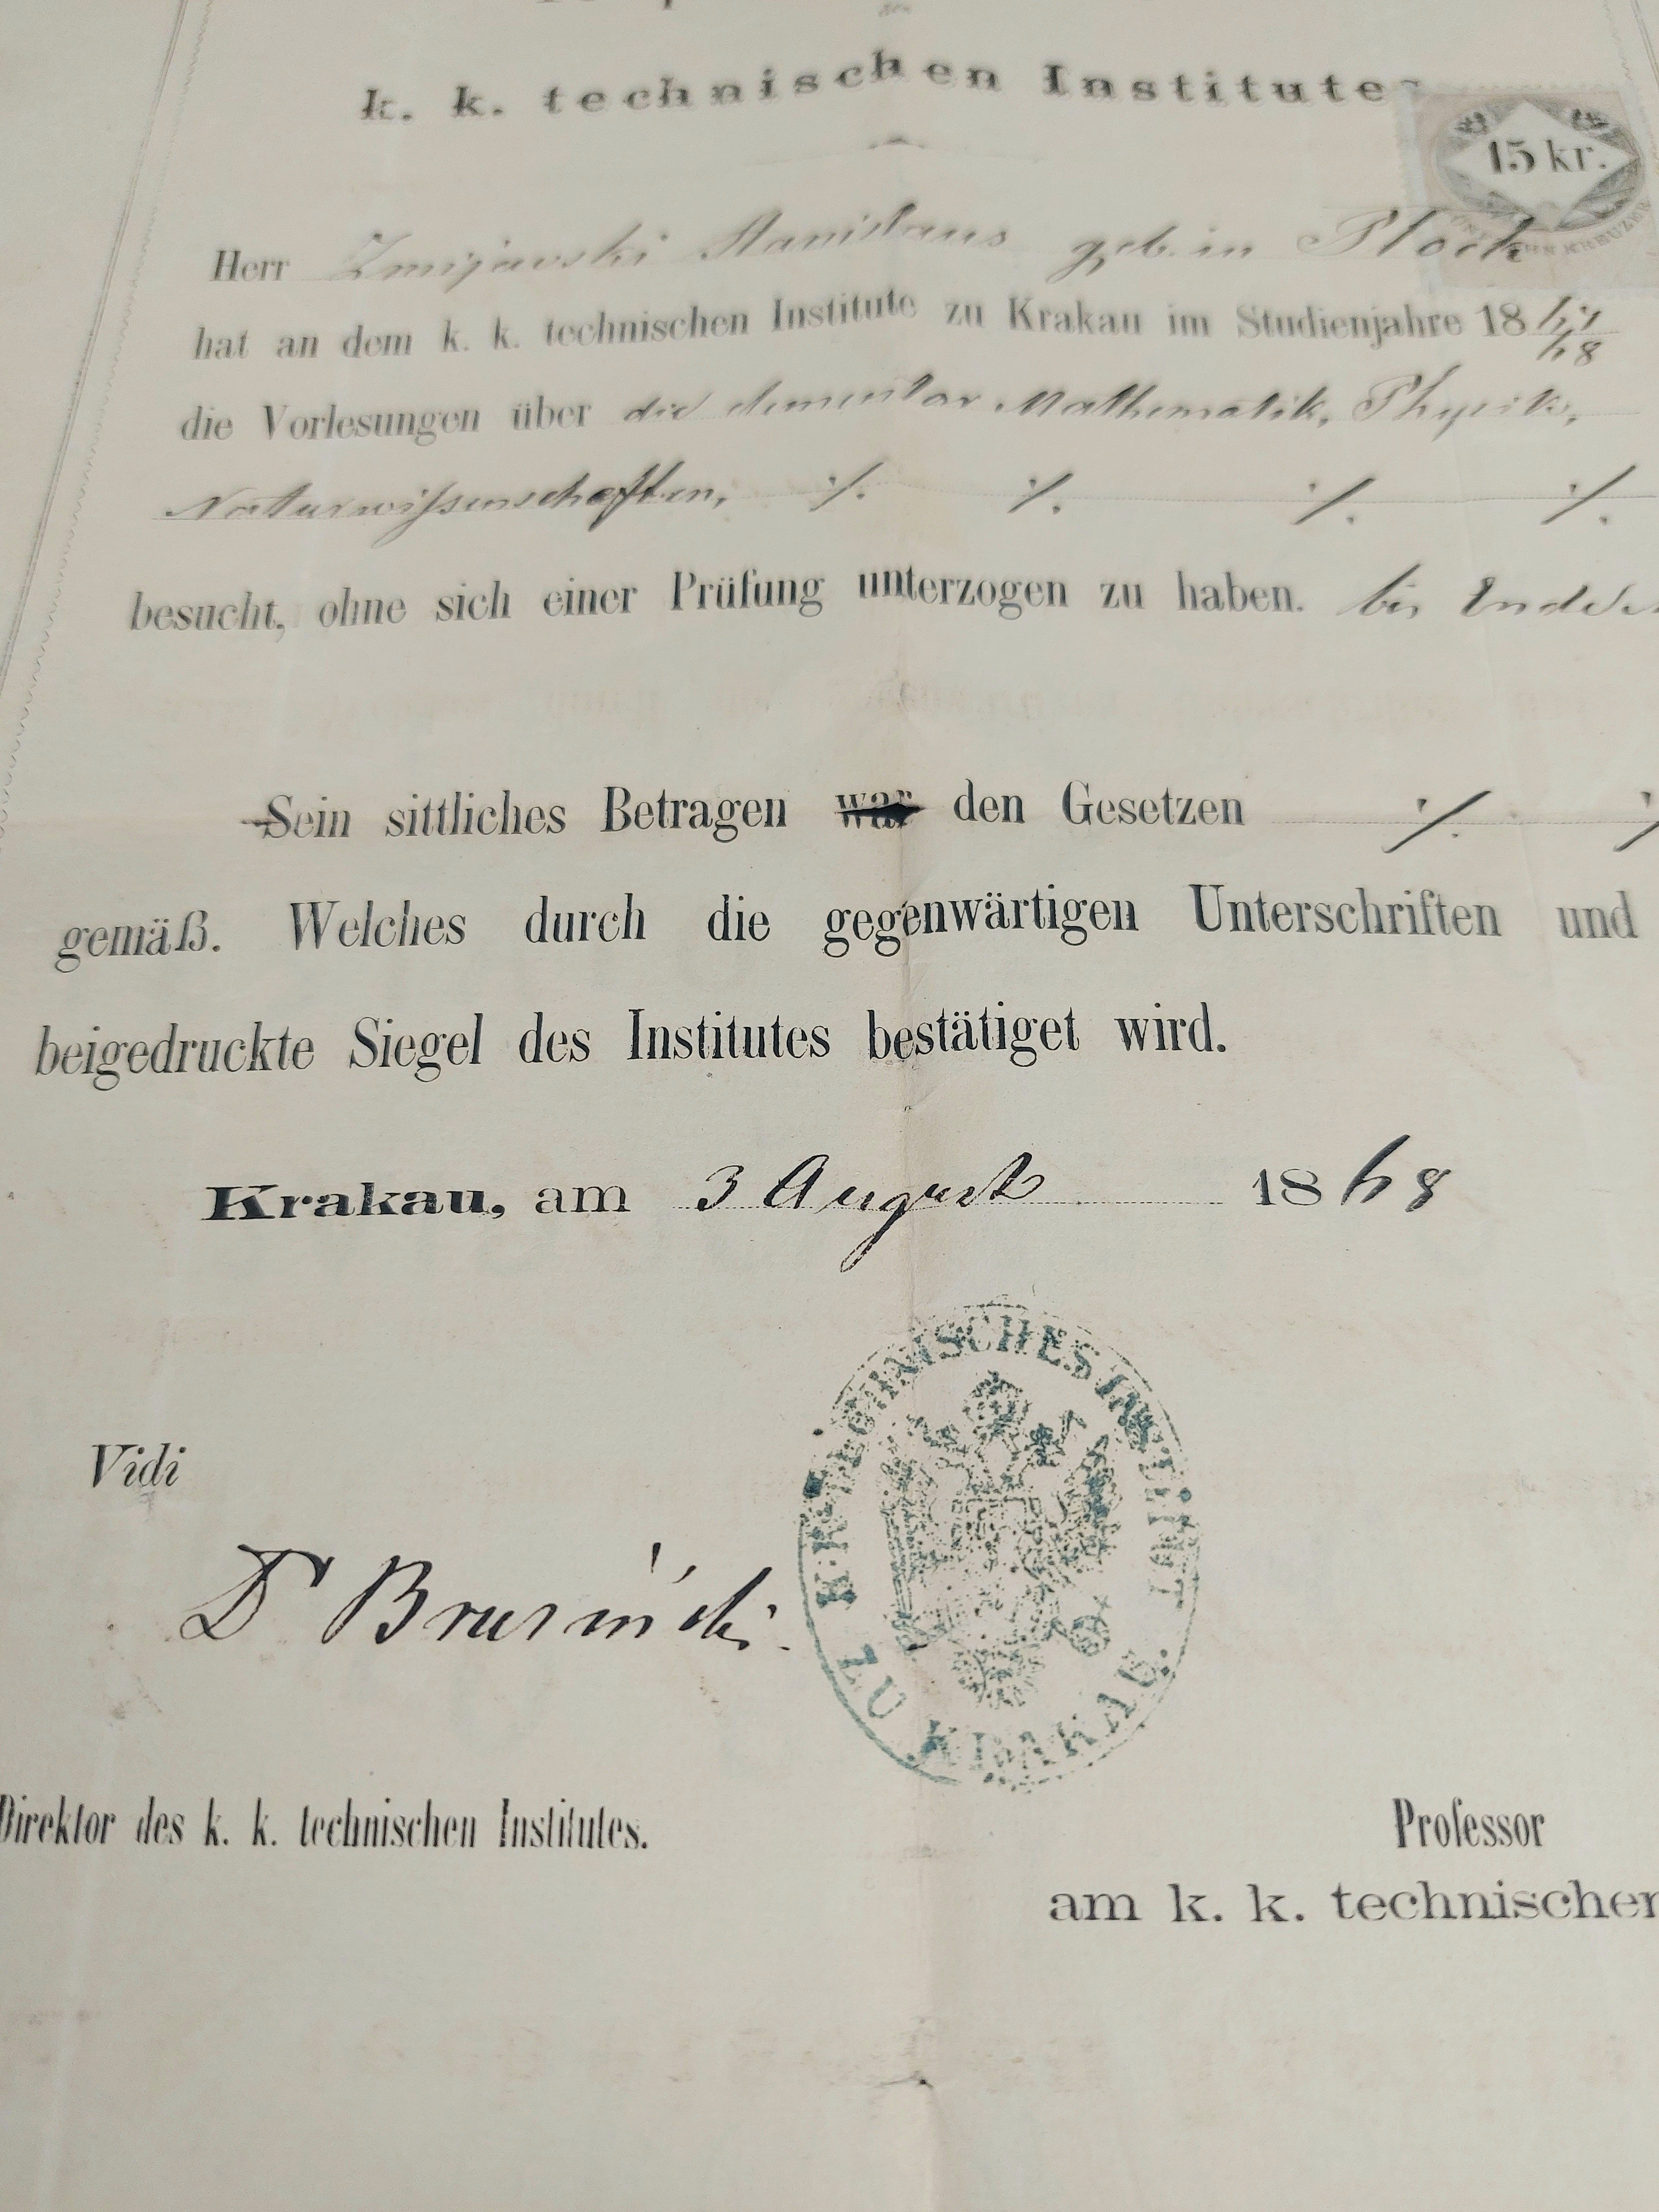 k. k. technischen Institutes
15 kr.
Herr Zmijewski Stanislaus geb. in Plock
hat an dem k. k. technischen Institute zu Krakau im Studienjahre 18 67/68
die Vorlesungen über die elementar Mathematik, Physik,
Naturwiſsenschaften, ·/. ·/. ·/. ·/.
besucht, ohne sich einer Prüfung unterzogen zu haben. bis Ende
Sein sittliches Betragen war den Gesetzen ·/.
gemäß. Welches durch die gegenwärtigen Unterschriften und
beigedruckte Siegel des Institutes bestätiget wird.
Krakau, am 3 August 1868
K.K. TECHNISCHES INSTITUT
ZU KRAKAU.
Vidi
Dr Brusiński
Direktor des k. k. technischen Institutes.
Professor
am k. k. technischen